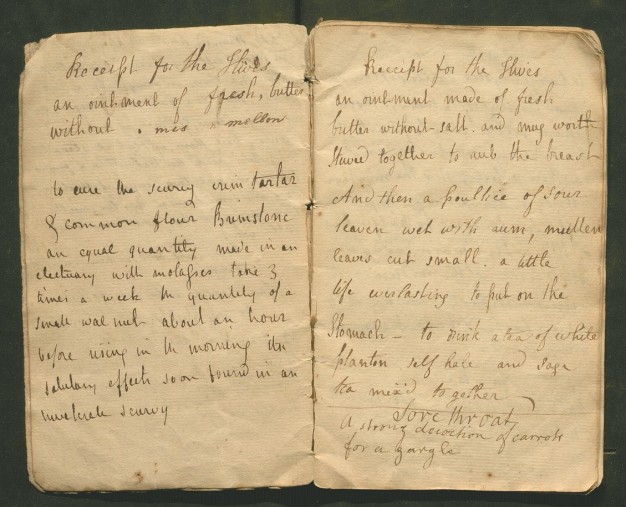 Receipt for the Hives
an ointment of fresh butter
without mes mellon
to cure the scurvy crim tartar
& common flour Brimstone
an equal quantity made in an
electuary with molasses take 3
times a week the quantity of a
small walnut about an hour
before rising in the morning its
salutary effects soon found in an
inveterate scurvy
Receipt for the Hives
an ointment made of fresh
butter without salt. and mug worth
Stewed together to rub the breast
And then a poultice of sour
leaven wet with rum, mullen
leaves cut small. a little
life everlasting to put on the
Stomach - to drink a tea of white
planton self hale and sage
tea mix'd together
Sore throat
A strong decoction of carrots
for a gargle